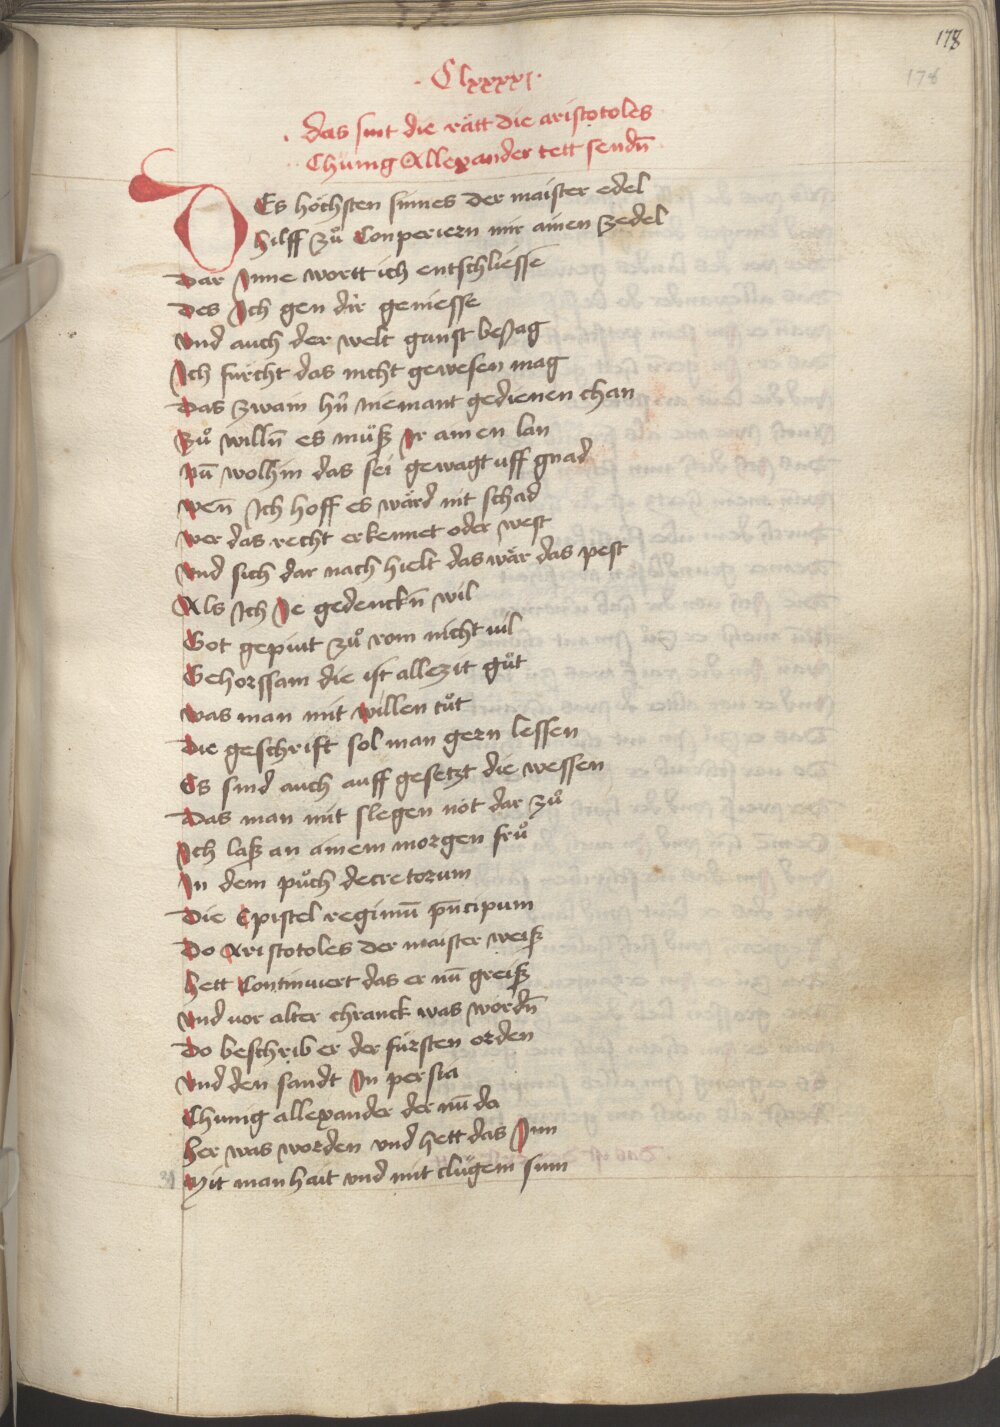 178
178
· Clxxxxi ·
· das sint die rätt die aristotoles
Chunig Allexander tett sendn̄
DEs höchsten sinnes der maister edel
hilff zů Conperiern mir ainen zedel
Dar Inne wortt ich entschliesse
Des Ich gen dir geniesse
Vnd auch der welt gunst beJag
Ich fürcht das nicht gewesen mag
Das zwain hn̄ niemant gedienen chan
Zů willn̄ es müß Ir ainen lan
Nū wolhin das sei gewagt uff gnad
Wen̄ Ich hoff es wärd nit schad
Wer das recht erkennet oder west
Vnd sich dar nach hielt das wär das pest
Als Ich Je gedenckn̄ wil
Got gepiut zů vom nicht uil
Gehorssam die ist allezit gůt
Was man mit willen tůt
Die geschrift sol man gern lessen
Es sind auch auff gesetzt die wessen
Das man mit slegen nöt dar zů
Ich laß an ainem morgen frů
In dem půch decretorum
Die Epistel regimū p̄ncipum
Do Aristotoles der maister weiß
hett Continuiert das er nū greiß
Vnd uor alter chranck was wordn̄
Do beschrib er der fürsten orden
Vnd den sandt In persia
Chunig allexander der nū da
her was worden vnd hett das Inn
Mit manhait vnd mit clügem sinn